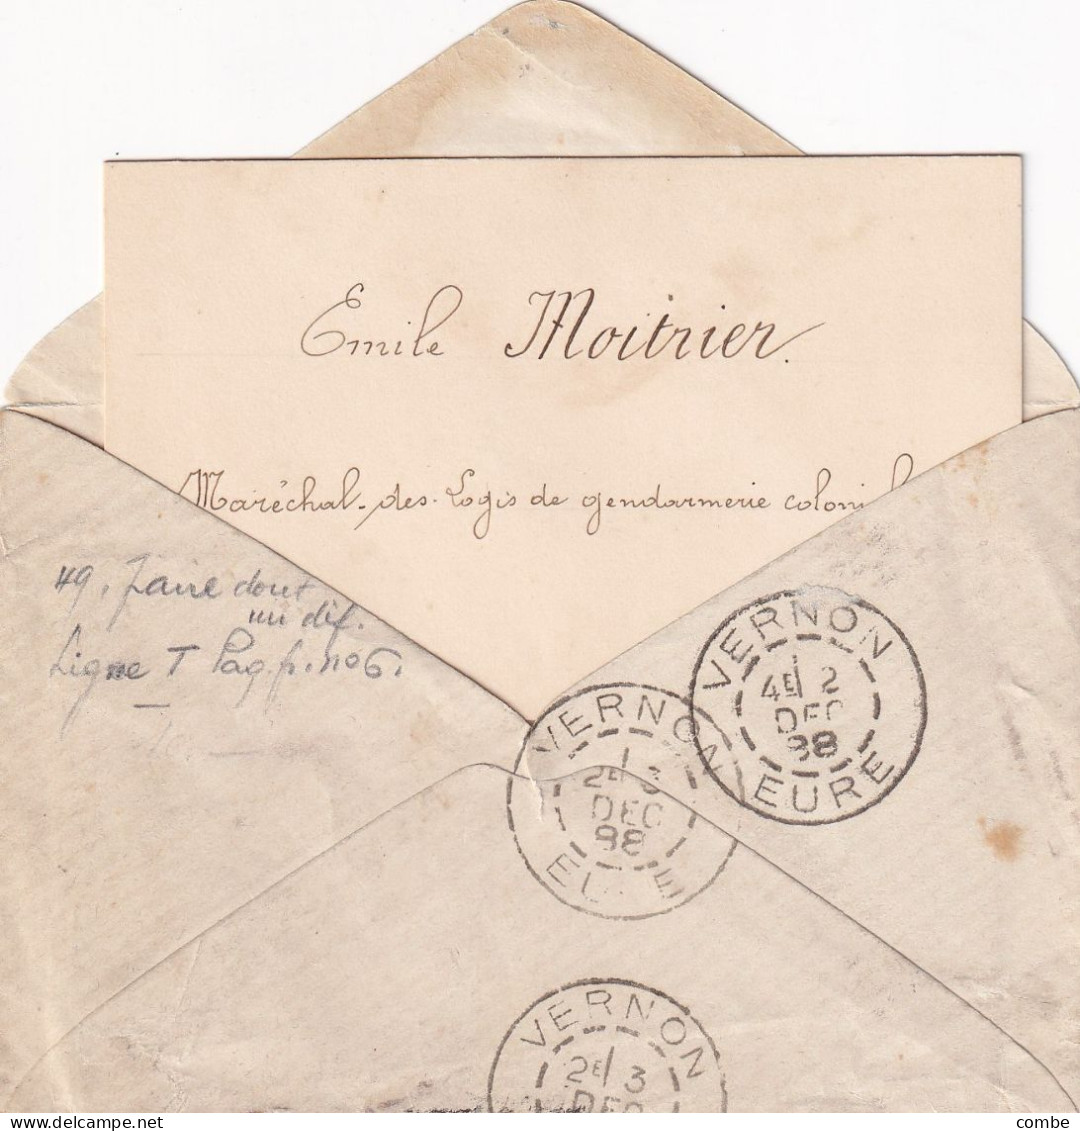 Emile Moitrier.
Maréchal-des-Logis de gendarmerie coloni
49, Zaire dont
un déf.
Ligne T Paq. fr. no 6.
VERNON
4E/ 2
DEC
88
EURE
VERNON
2E/ 3
DEC
88
EURE
VERNON
2E/ 3
DEC
www.delcampe.net
combe